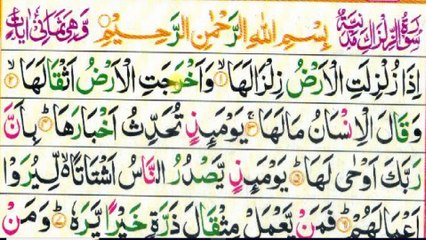 سُوْرَةُ الزِّلْزَالِ مَدَنِيَّةٌ بِسْمِ اللّٰهِ الرَّحْمٰنِ الرَّحِيْمِ وَهِيَ ثَمَانِيْ اٰيَاتٍ
اِذَا زُلْزِلَتِ الْاَرْضُ زِلْزَالَهَا ۙ﴿۱﴾ وَاَخْرَجَتِ الْاَرْضُ اَثْقَالَهَا ۙ﴿۲﴾
وَقَالَ الْاِنْسَانُ مَا لَهَا ۚ﴿۳﴾ يَوْمَئِذٍ تُحَدِّثُ اَخْبَارَهَا ۙ﴿۴﴾ بِاَنَّ
رَبَّكَ اَوْحٰى لَهَا ؕ﴿۵﴾ يَوْمَئِذٍ يَّصْدُرُ النَّاسُ اَشْتَاتًا ۙ۬ لِّيُرَوْا
اَعْمَالَهُمْ ؕ﴿۶﴾ فَمَنْ يَّعْمَلْ مِثْقَالَ ذَرَّةٍ خَيْرًا يَّرَهٗ ؕ﴿۷﴾ وَمَنْ